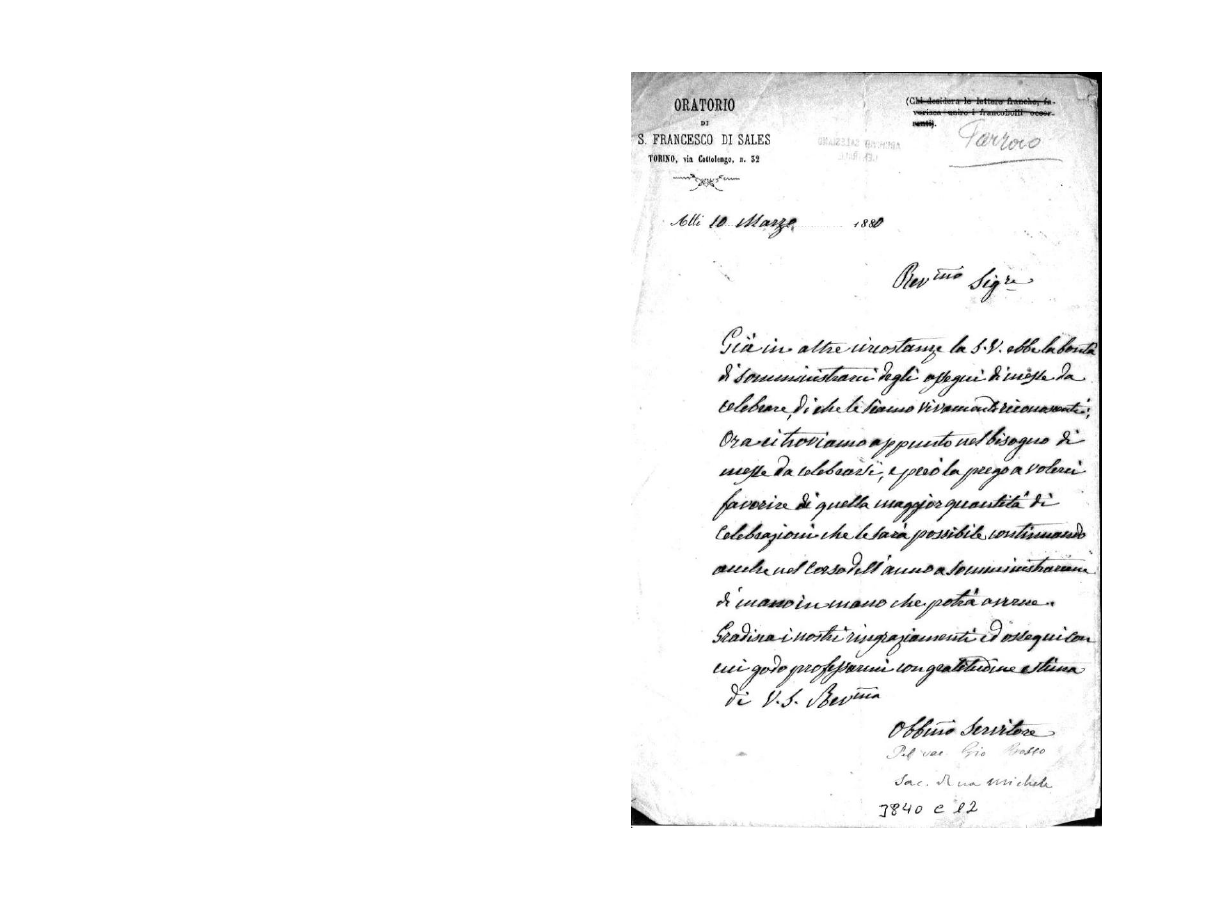 ORATORIO
DI
S. FRANCESCO DI SALES
TORINO, via Cottolengo, n. 32
(Chi desidera le lettere franche, fa-
verisca unire i francobolli occor-
renti).
Parroco
Alli 10 Marzo 1880
Rev.mo Sig.re
Già in altre circostanze la S.V. ebbe la bontà
di somministrarci degli assegni di messe da
celebrare, di che le siamo vivamente riconoscenti;
Ora ci troviamo appunto nel bisogno di
messe da celebrarsi, e però la prego a volerci
favorire di quella maggior quantità di
Celebrazioni che le sarà possibile continuando
anche nel corso dell'anno a somministrarcene
di mano in mano che potrà averne.
Gradisca i nostri ringraziamenti ed ossequi con
cui godo professarmi con gratitudine e stima
di V. S. Rev.ma
Obb.mo Servitore
Pel sac. Gio Bosco
Sac. Rua Michele
3840 C 12